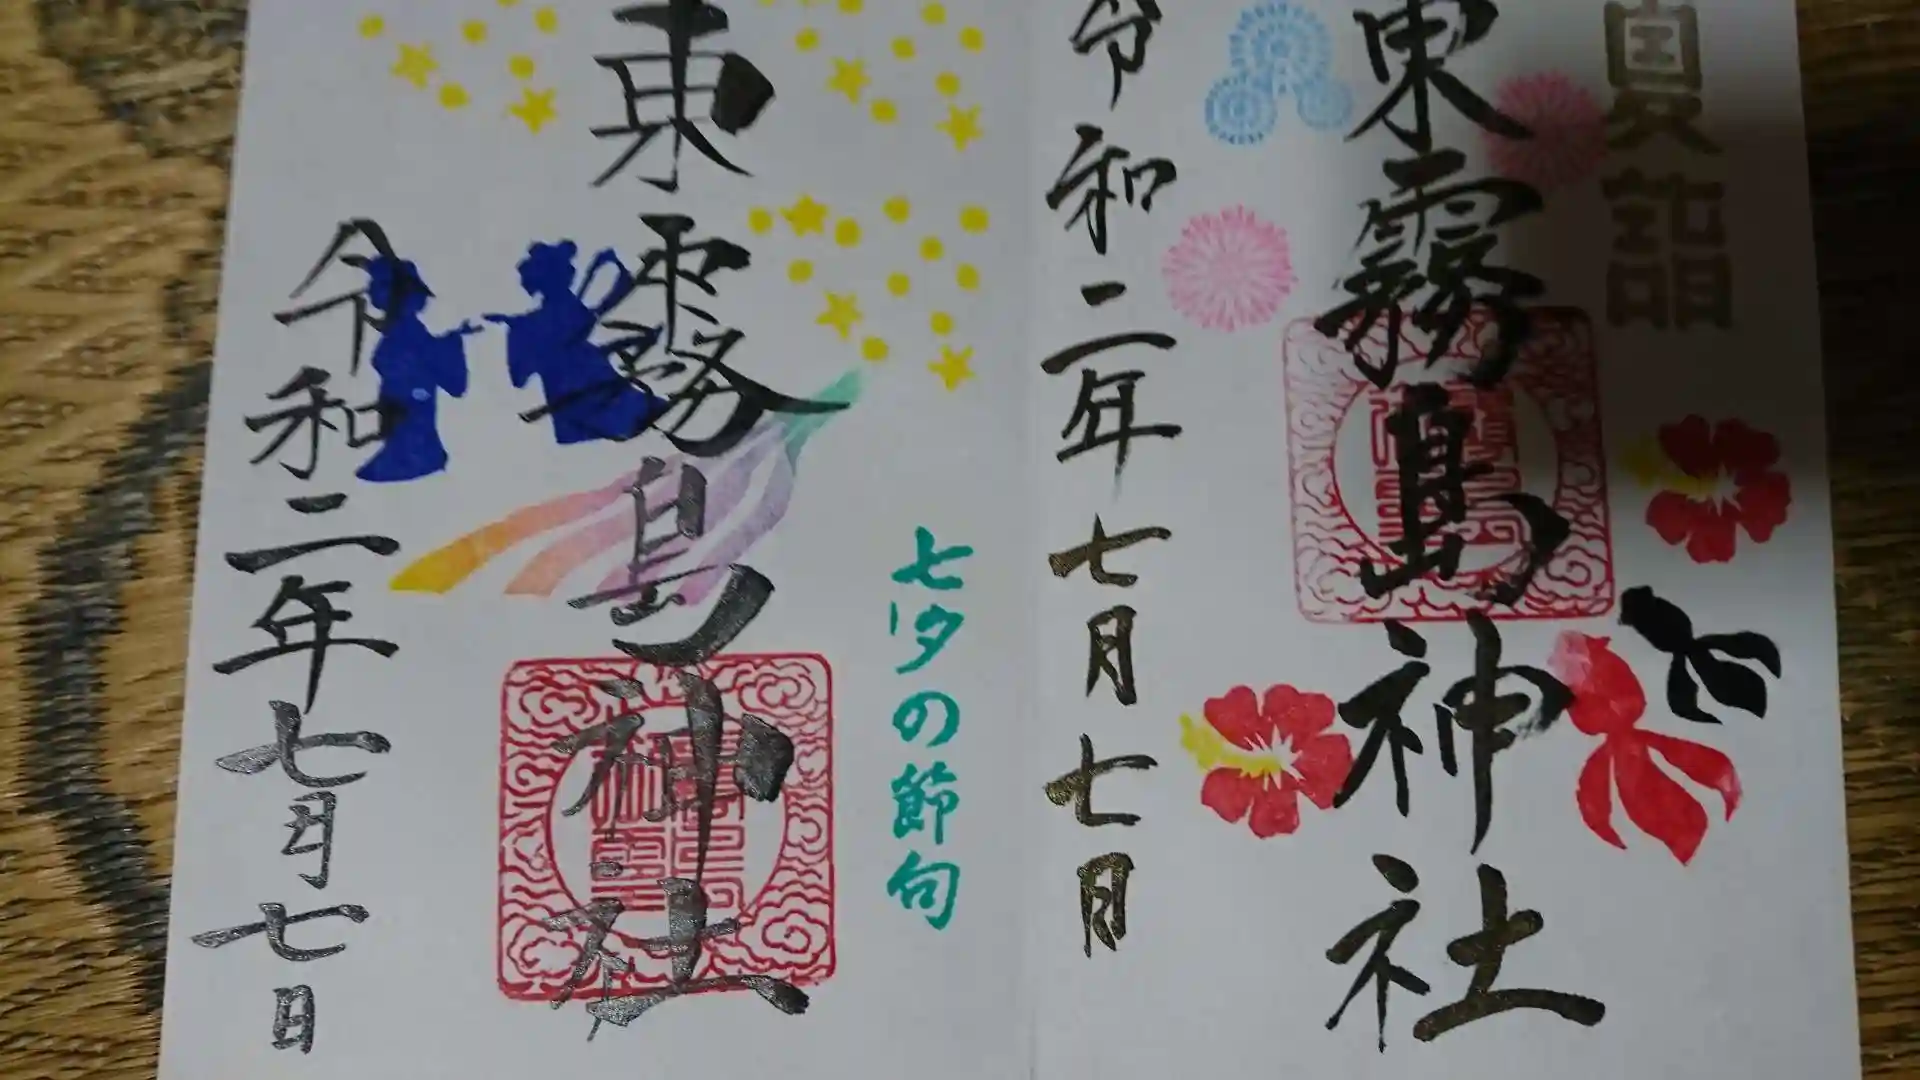 奥詣
東霧島神社
令和二年七月七日
七夕の節句
東霧島神社
令和二年七月七日